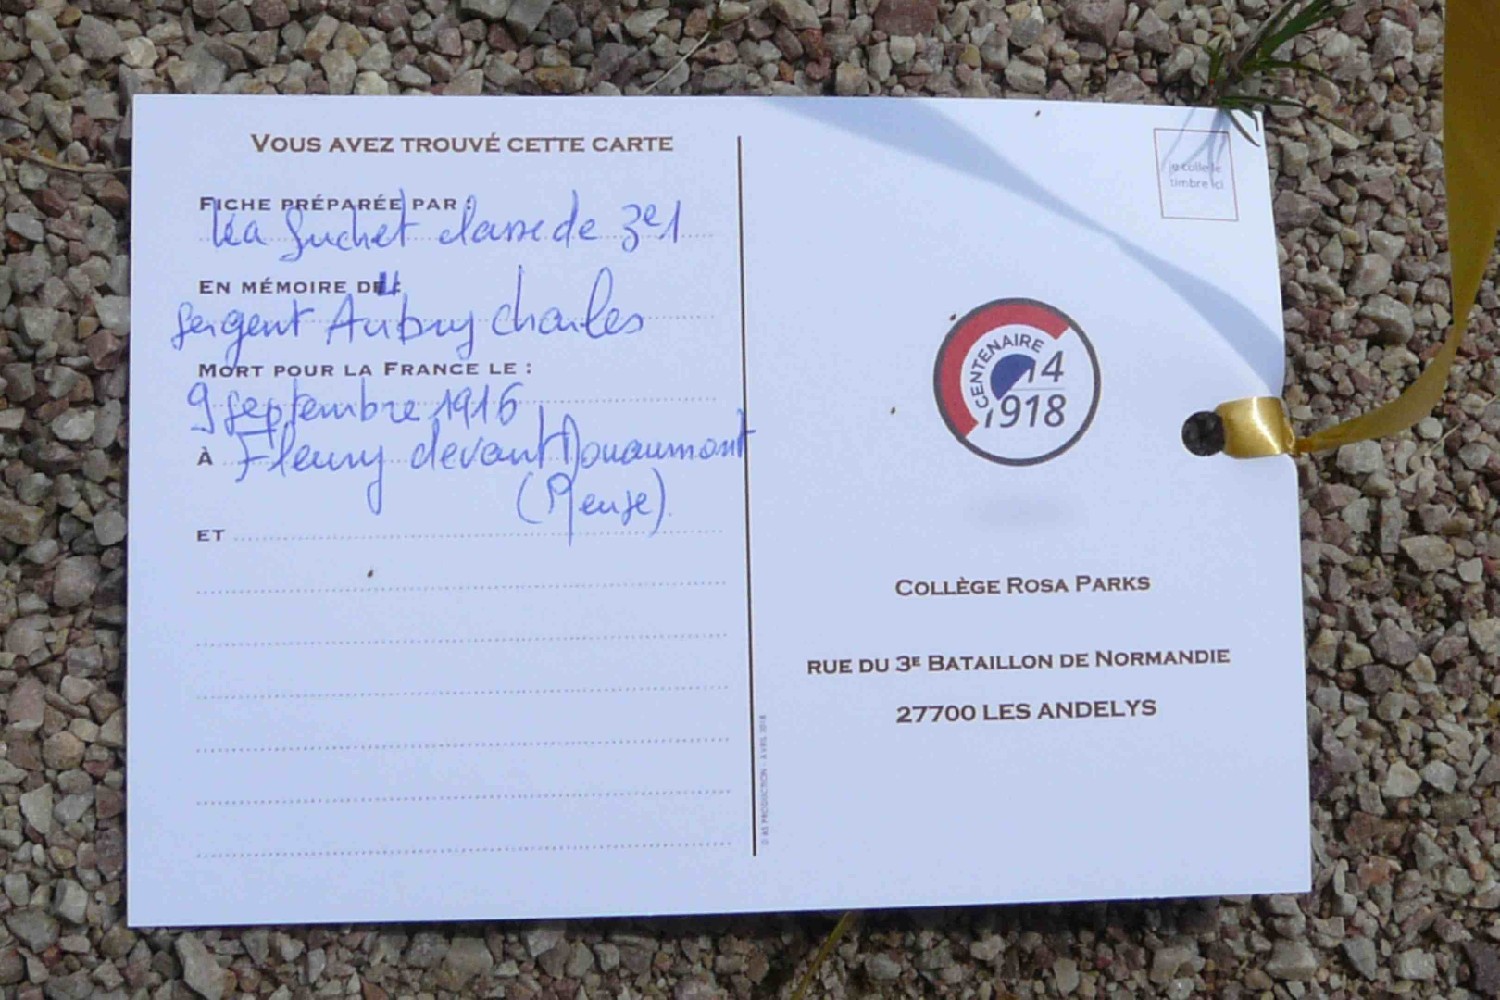 VOUS AVEZ TROUVÉ CETTE CARTE
FICHE PRÉPARÉE PAR :
Léa Suchet classe de 3e1
EN MÉMOIRE DE :
Sergent Aubry Charles
MORT POUR LA FRANCE LE :
9 septembre 1916
À Fleury devant Douaumont
(Meuse).
ET
je colle le
timbre ici
CENTENAIRE
14
1918
COLLÈGE ROSA PARKS
RUE DU 3E BATAILLON DE NORMANDIE
27700 LES ANDELYS